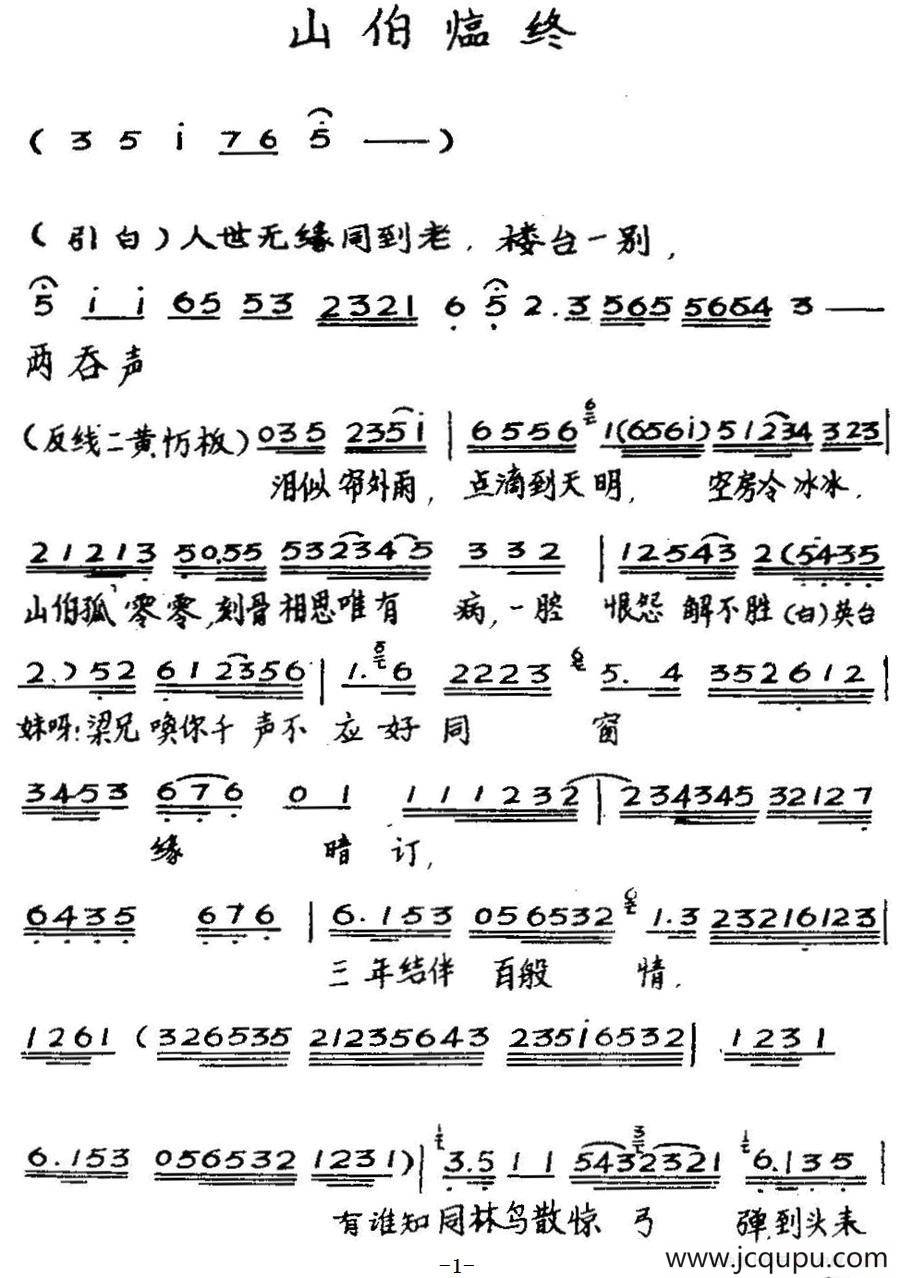 山伯临终
( 3 5 i 76 5 — )
(引白)人世无缘同到老,楼台一别,
5 i i 65 53 2321 6 5 2.3 565 5654 3 —
两吞声
(反线二黄忻板) 035 235i | 6556 1(656i) 51234 323 |
泪似帘外雨,点滴到天明,空房冷冰冰.
21213 50.55 532345 3 32 | 12543 2(5435
山伯孤零零,刻骨相思唯有病,一腔恨怨解不胜(白)英台
2.) 52 612356 | 1.6 2223 5.4 352612 |
妹呀!梁兄唤你千声不应好同窗
3453 676 01 111232 | 234345 32127
缘暗订,
6435 676 | 6.153 056532 1.3 23216123 |
三年结伴百般情.
1261 (326535 21235643 235i6532 | 1231
6.153 056532 1231) | 3.5 11 5432321 6.135 |
有谁知同林鸟散惊弓弹到头来
-1-
www.jcqupu.com